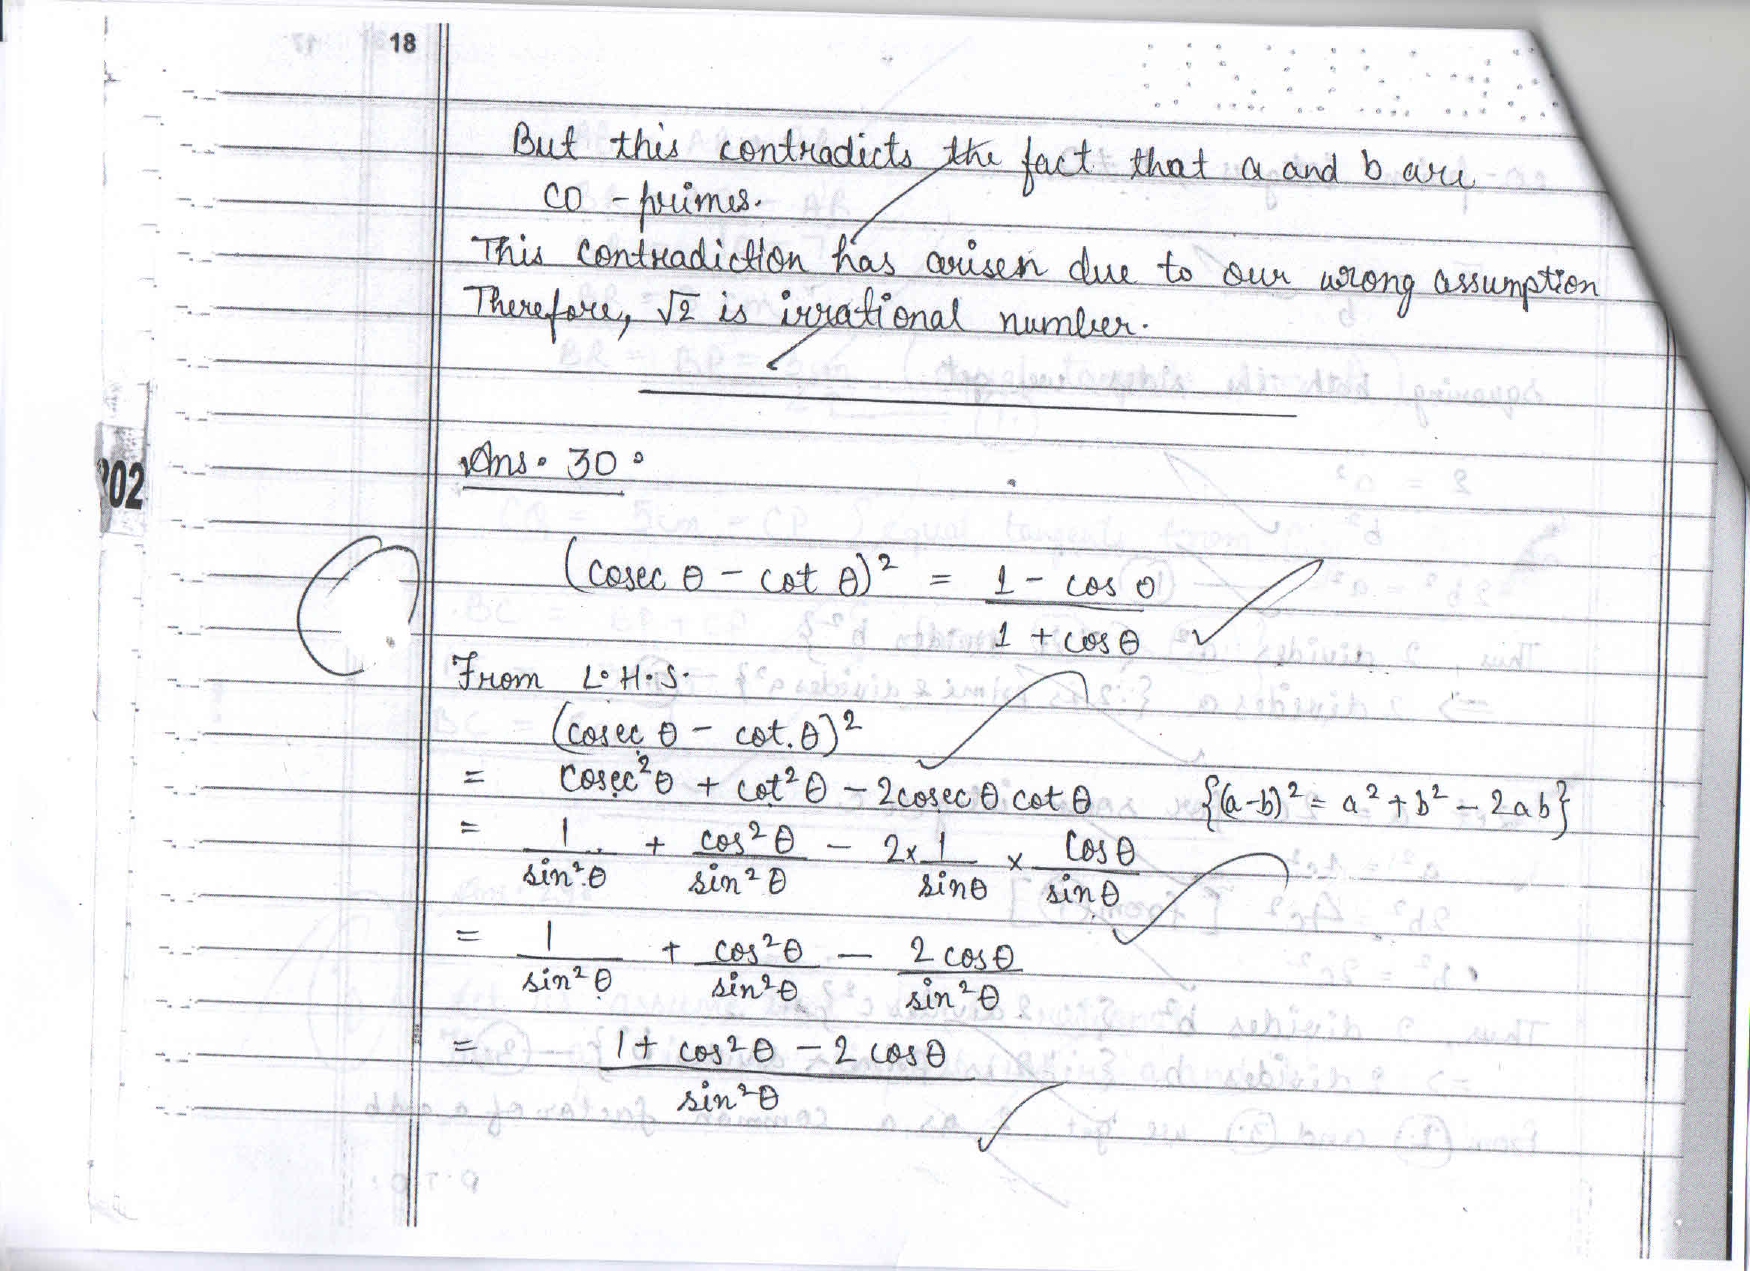 18
But this contradicts the fact that a and b are
co-primes.
This contradiction has arisen due to our wrong assumption
Therefore, √2 is irrational number.
202
Ans. 30.
(cosec θ - cot θ)² = (1 - cos θ)/(1 + cos θ)
From L.H.S.
(cosec θ - cot. θ)²
= cosec²θ + cot²θ - 2cosec θ cot θ {(a-b)² = a² + b² - 2ab}
= 1/sin²θ + cos²θ/sin²θ - 2 × 1/sinθ × cosθ/sinθ
= 1/sin²θ + cos²θ/sin²θ - 2 cosθ/sin²θ
= (1 + cos²θ - 2 cosθ)/sin²θ